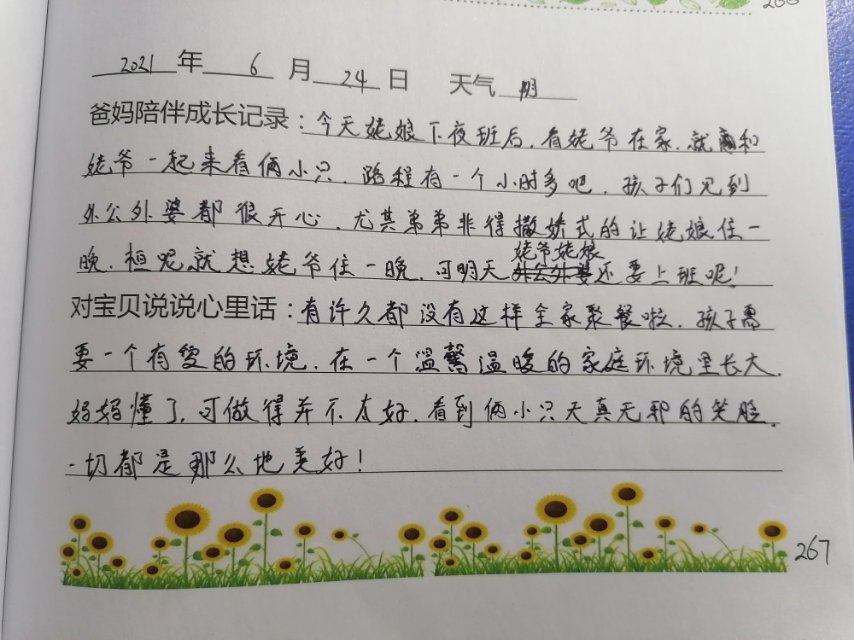 266
2021 年 6 月 24 日 天气 阴
爸妈陪伴成长记录：今天姥娘下夜班后，看姥爷在家，就和
姥爷一起来看俩小只，路程有一个小时多吧，孩子们见到
外公外婆都很开心，尤其弟弟非得撒娇式的让姥娘住一
姥爷姥娘
晚，桓呢就想姥爷住一晚，可明天外公外婆还要上班呢！
对宝贝说说心里话：有许久都没有这样全家聚餐啦，孩子需
要一个有爱的环境，在一个温馨温暖的家庭环境里长大，
妈妈懂了，可做得并不太好，看到俩小只天真无邪的笑脸，
一切都是那么地美好！
267